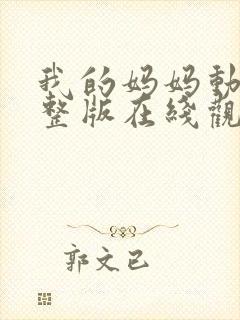 我的妈妈動
整版在綫觀
郭文已